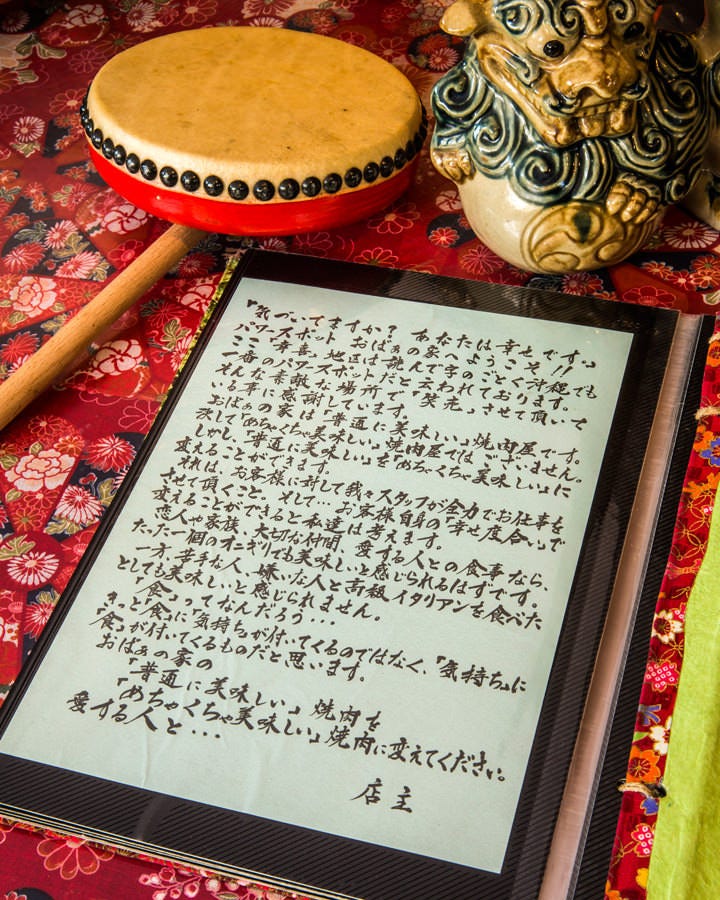 『気づいてますか？ あなたは幸せです。』
パワースポット おばぁの家へようこそ!!
ここ「幸喜」地区は読んで字のごとく沖縄でも
一番のパワースポットだと云われております。
そんな素敵な場所で『笑売』させて頂いて
いる事に感謝しています。
おばぁの家は『普通に美味しい』焼肉屋です。
決して『めちゃくちゃ美味しい』焼肉屋ではございません。
しかし、『普通に美味しい』を『めちゃくちゃ美味しい』に
変えることができます。
それは、お客様に対して我々スタッフが全力でお仕事を
させて頂くこと。そして…お客様自身の『幸せ度合い』で
変えることができると私達は考えます。
恋人や家族、大切な仲間、愛する人との食事なら、
たった一個のオニギリでも美味しいと感じられるはずです。
一方、苦手な人、嫌いな人と高級イタリアンを食べた
としても美味しいと感じられません。
『食』ってなんだろう・・・
きっと『食』に『気持ち』が付いてくるのではなく、『気持ち』に
『食』が付いてくるものだと思います。
おばぁの家の
『普通に美味しい』焼肉を
『めちゃくちゃ美味しい』焼肉に変えてください。
愛する人と・・・
店主